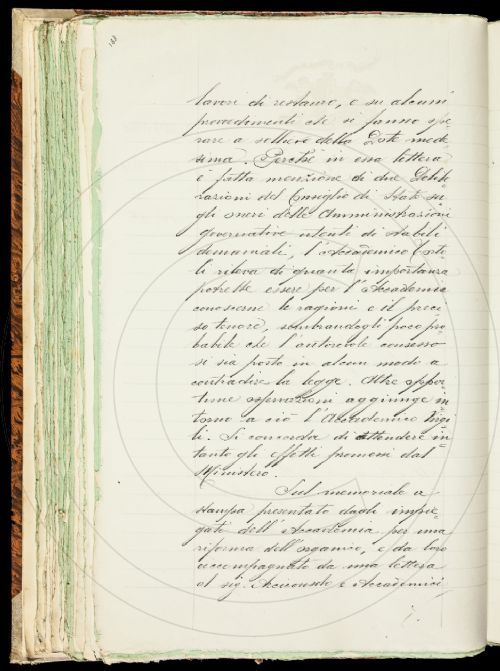 lavori di restauro, e su alcuni
provvedimenti che si fanno spe=
rare a sollievo della Dote mede=
sima. Perchè in essa lettera
è fatta menzione di due Delibe=
razioni del Consiglio di Stato su=
gli oneri delle Amministrazioni
governative utenti di stabili
demaniali, l'Accademico
li rileva di quanta importanza
potrebbe essere per l'Accademia
conoscerne le ragioni e il preci=
so tenore, sembrandogli poco pro=
babile che l'autorevole consesso
si sia posto in alcun modo a
contradire la legge. Altre oppor=
tune osservazioni aggiunge in=
torno a ciò l'Accademico
li. Si concorda di attendere in=
tanto gli effetti promessi dal
Ministero.
Sul memoriale a
stampa presentato dagli impie=
gati dell'Accademia per una
riforma dell'organico, e da loro
accompagnato da una lettera
al sig. e Accademici